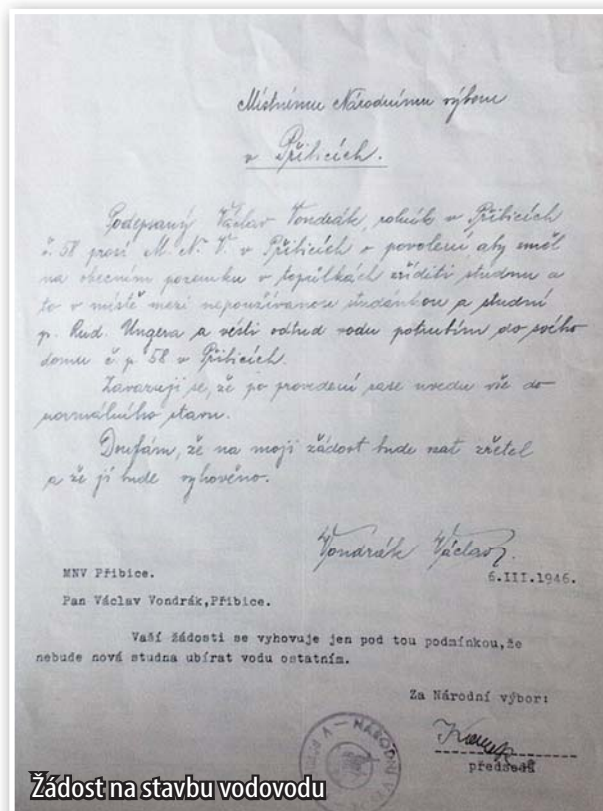 Místnému Národnímu výboru
v Přibicích.
Podepsaný Václav Vondrák, rolník v Přibicích
č. 58 prosí M. N. V. v Přibicích o povolení, aby směl
na obecném pozemku v topůlkách zříditi studnu a
to v místě mezi nepoužívanou studánkou a studní
p. Rud. Ungera a vésti odtud vodu potrubím do svého
domu č. p. 58 v Přibicích.
Zavazuji se, že po provedení zase uvedu vše do
normálního stavu.
Doufám, že na moji žádost bude vzat zřetel
a že jí bude vyhověno.
Vondrák Václav.
6.III.1946.
MNV Přibice.
Pan Václav Vondrák,Přibice.
Vaší žádosti se vyhovuje jen pod tou podmínkou,že
nebude nová studna ubírat vodu ostatním.
Za Národní výbor:
předseda
NÁRODNÍ
Žádost na stavbu vodovodu